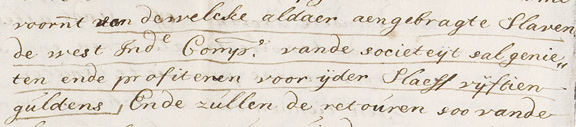 voornt van dewelcke aldaer aengebragte Slaven
de west Inde Compe. vande societeijt sal genie„
ten ende profiteren voor ijder Slaeff vijftien
guldens, Ende zullen de retouren soo vande